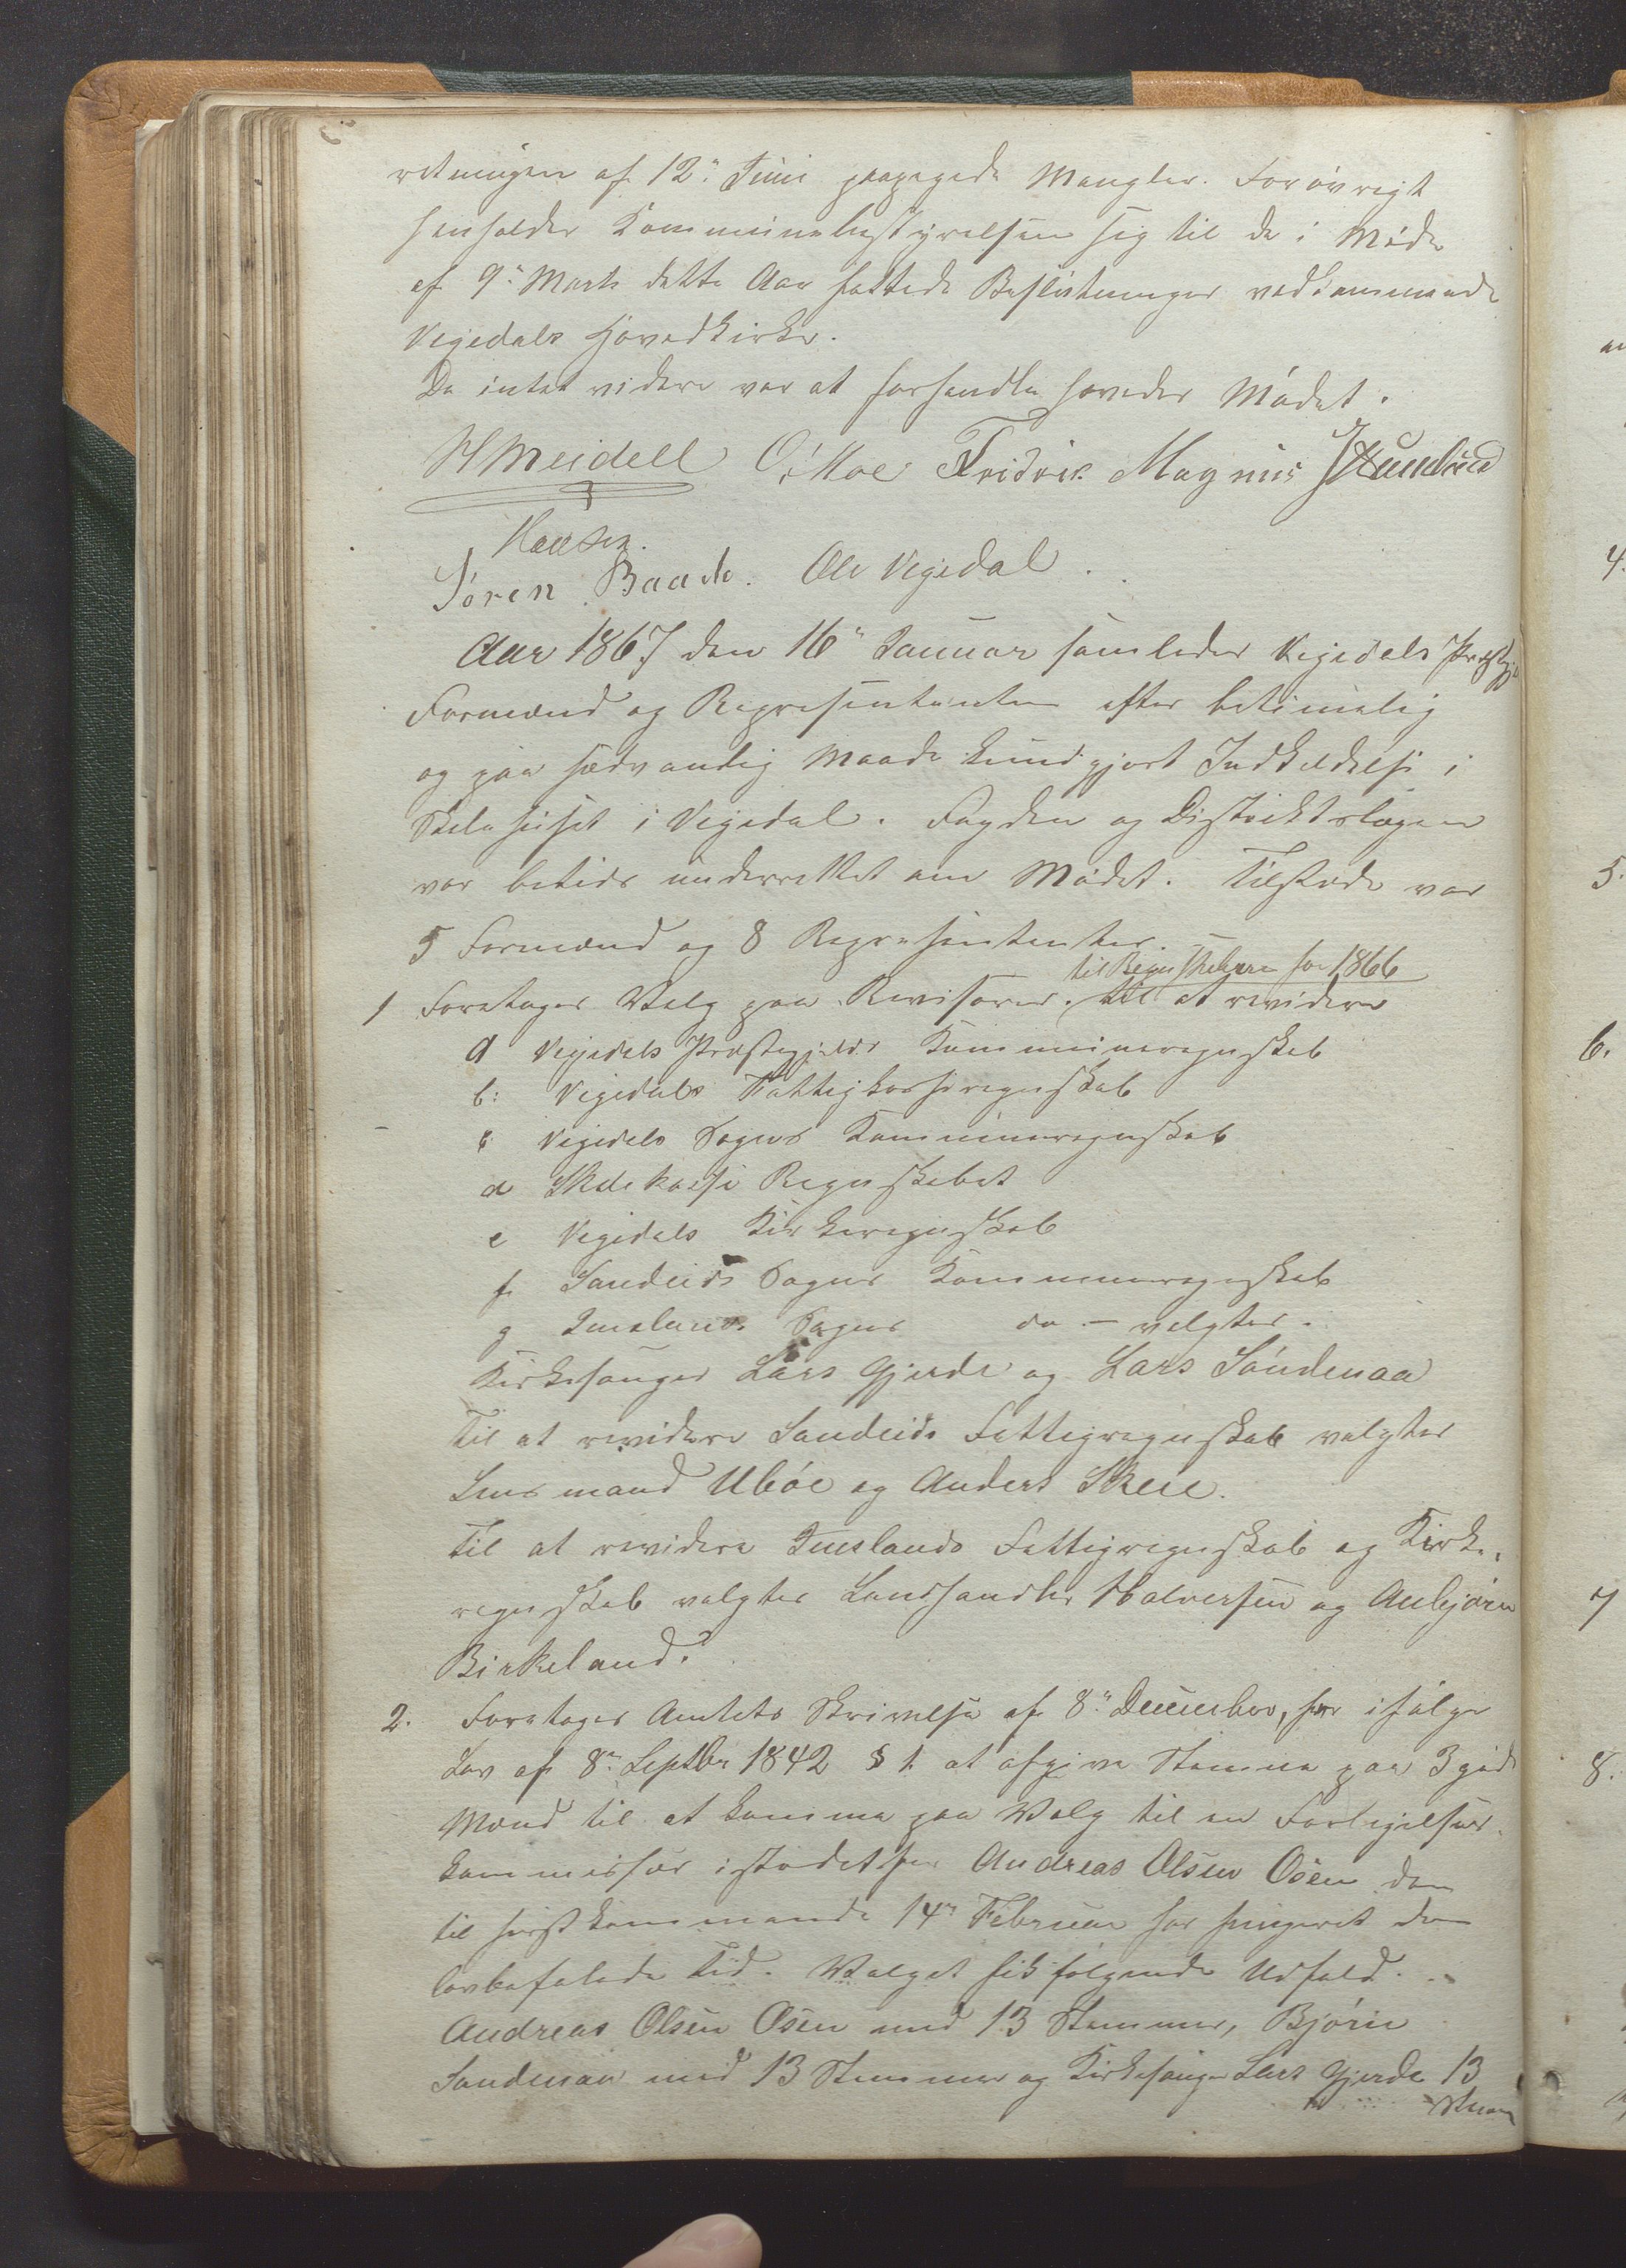 retningen af 12" Juni paapegede Mangler. Forøvrigt
henholder Kommunebestyrelsen sig til de i Møde
af 9" Marts dette Aar fattede Beslutninger vedkommende
Vigedals Hovedkirke.
Da intet videre var at forhandle hævedes Mødet.
H Meidell O: Moe Fridrik Magnus
Hansen.
Sören Baade. Ole Vigedal.
Aar 1867 den 16" Januar samledes Vigedals Præstgj
Formænd og Repræsentanter efter betimelig
og paa sædvanlig Maade kundgjort Indkaldelse i
Skolehuset i Vigedal. Fogden og Distriktslægen
var betids underrettet om Mødet. Tilstede var
5 Formænd og 8 Repræsentanter. –
til Regnskaberne for 1866
1 Foretoges Valg paa Revisorer. til at revidere
a Vigedals Præstegjelds Kommuneregnskab
b: Vigedals Fattigkasseregnskab
c Vigedals Sogns Kommuneregnskab
d Skolekasse Regnskabet
e Vigedals Kirkeregnskab
f. Sandeids Sogns Kommuneregnskab
g Imslands Sogns do – valgtes.
Kirkesanger Lars Gjerde og Lars Söndenaa
Til at revidere Sandeids Fattigregnskab valgtes
Lensmand Uböe og Anders Skeie.
Til at revidere Imslands Fattigregnskab og Kirke-
regnskab valgtes Landhandler Halversen og Anbjörn
Birkeland.
2. Foretoges Amtets Skrivelse af 8" December, for ifølge
Lov af 8" Septbr 1842 § 1. at afgive Stemme paa 3 gode
Mænd til at komme paa Valg til en Forligelses-
kommissær istedetfor Andreas Olsen Ösen den
til førstkommende 14" Februar har fungeret den
lovbefalede Tid. Valget fik følgende Udfald.
Andreas Olsen Ösen med 13 Stemmer, Björn
Sandenaa med 13 Stemmer og Kirkesanger Lars Gjerde 13
Stem
4.
5.
6.
7
8.